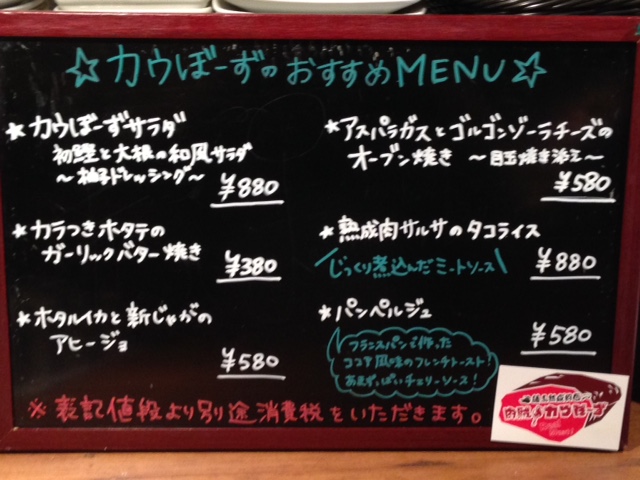 ☆カウぼーずのおすすめMENU☆
★カウぼーずサラダ
初鰹と大根の和風サラダ
～柚子ドレッシング～
¥880
★カラつきホタテの
ガーリックバター焼き
¥380
★ホタルイカと新じゃがの
アヒージョ
¥580
★アスパラガスとゴルゴンゾーラチーズの
オーブン焼き ～目玉焼き添え～
¥580
★熟成肉サルサのタコライス
\じっくり煮込んだミートソース/
¥880
★パンペルジュ
フランスパンで作った
ココア風味のフレンチトースト!
あまずっぱいチェリーソース!
¥580
※表記値段より別途消費税をいただきます。
カウぼーず